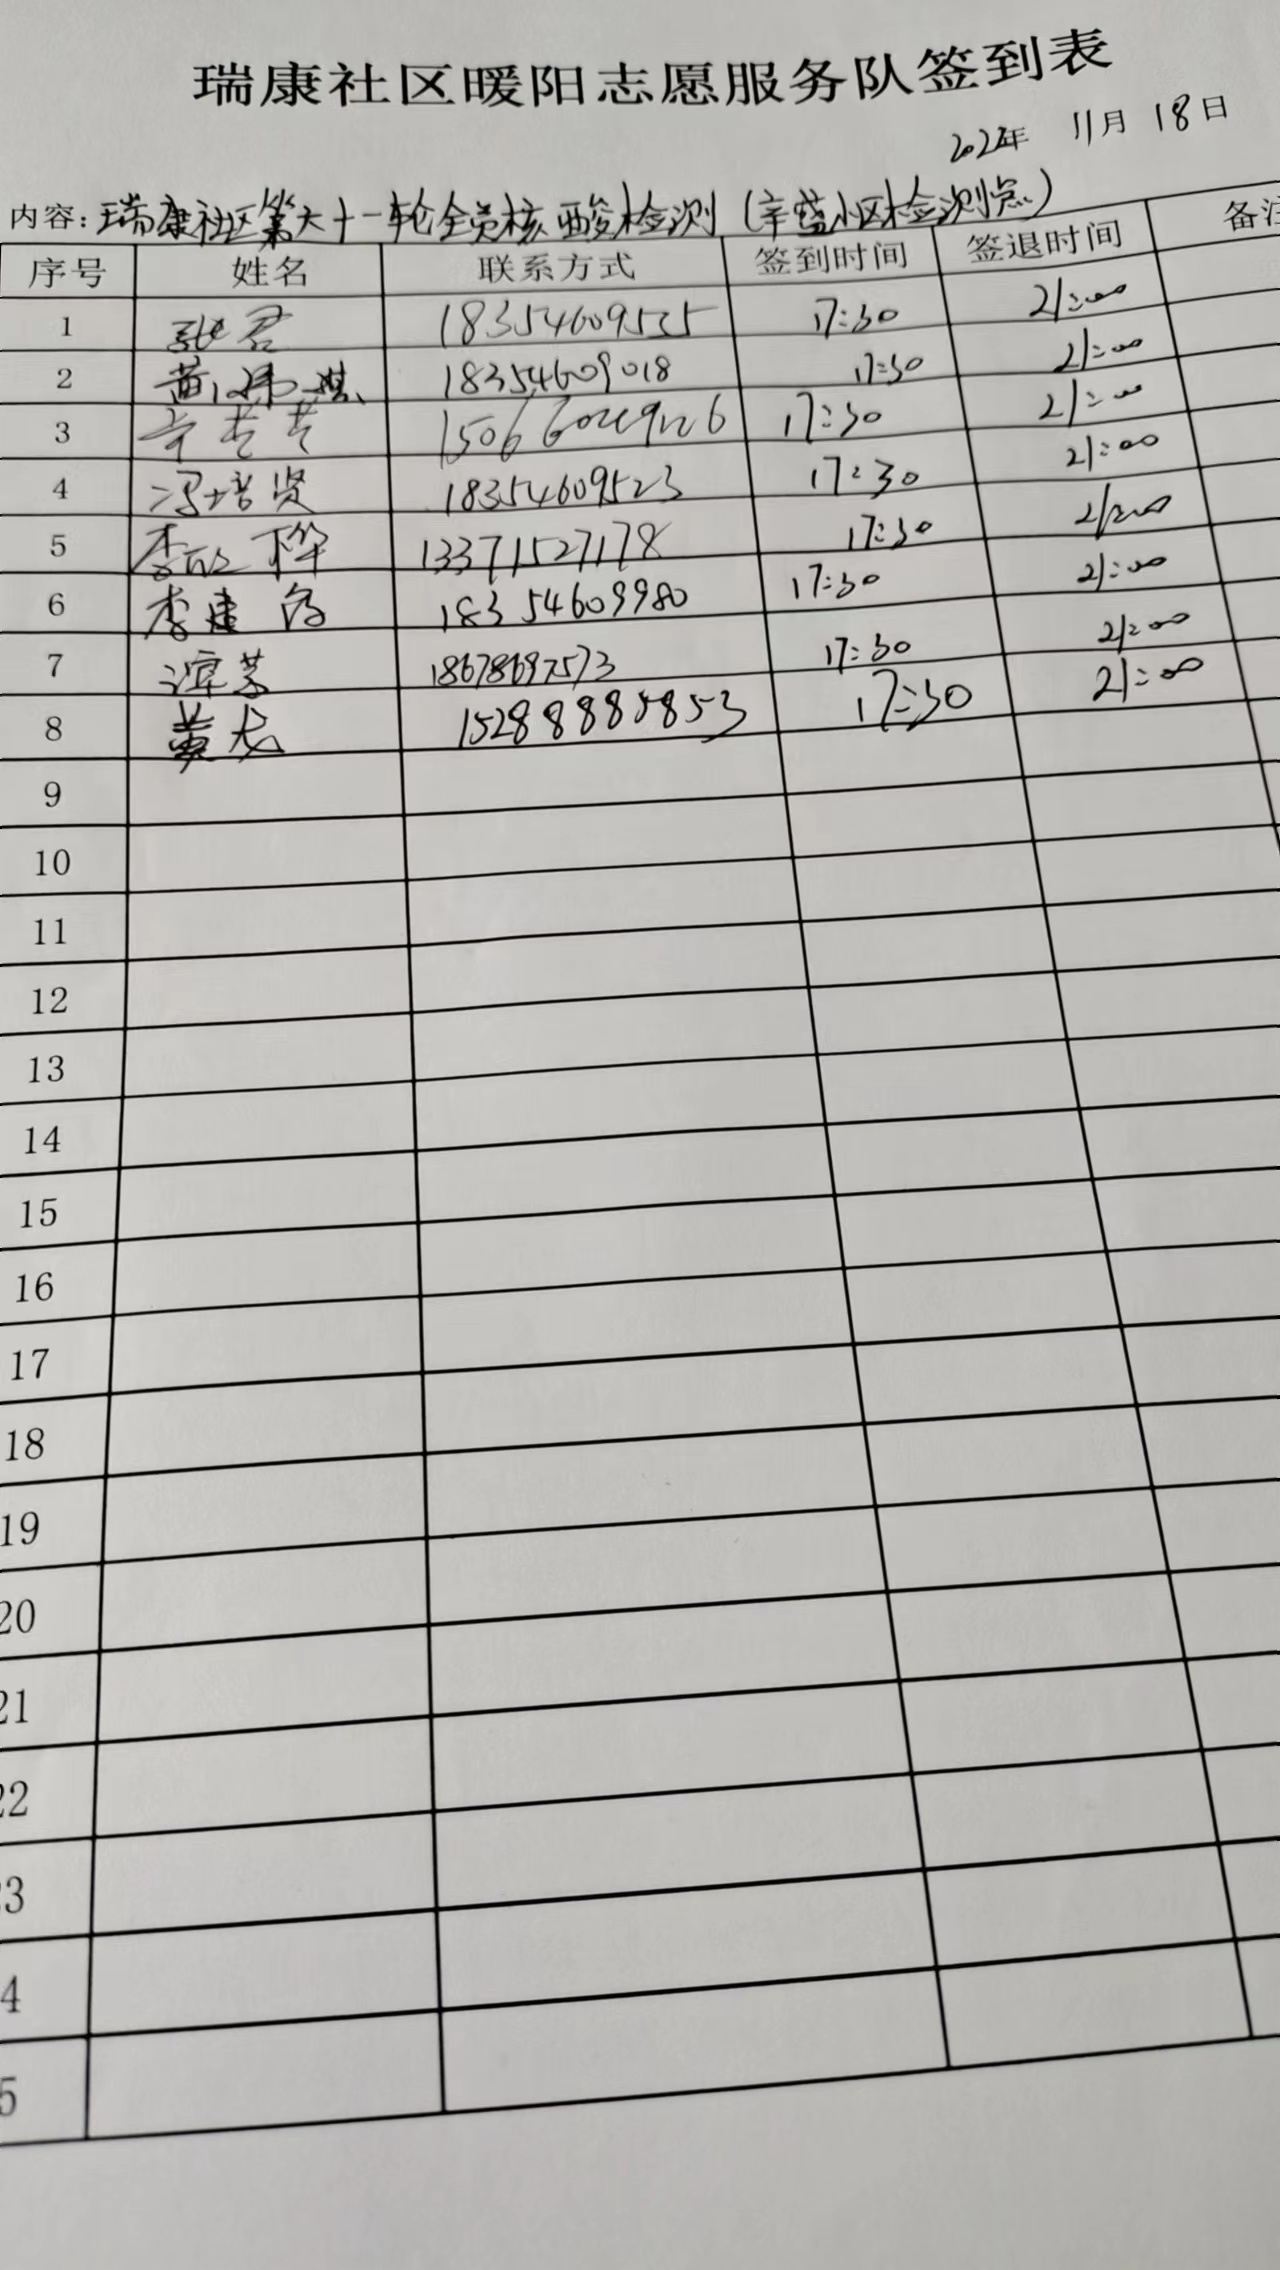 瑞康社区暖阳志愿服务队签到表
2022年 11月 18日
内容: 瑞康社区第六十一轮全员核酸检测 (辛盛小区检测点)
序号 姓名 联系方式 签到时间 签退时间 备注
1 张君 18354609525 17:30 21:00
2 黄 18354609018 17:30 21:00
3 17:30 21:00
4 冯培贤 18354609523 17:30 21:00
5 李 13371527178 17:30 21:00
6 李建 18354609980 17:30 21:00
7 18678697573 17:30 21:00
8 黄龙 15288885853 17:30 21:00
9
10
11
12
13
14
15
16
17
18
19
20
21
22
23
4
5